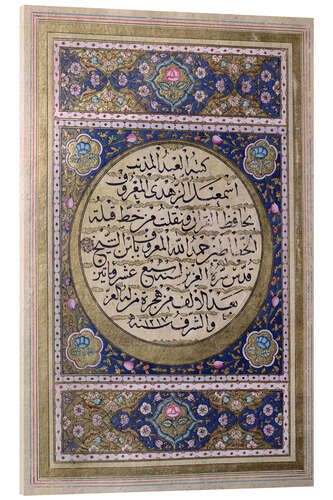 كتبه العبد المذنب
اسمعيل الزهدي المعروف
بحافظ القرآن ونقلت من خط قبلة
الخطاطين حمد الله المعروف بابن الشيخ
قدس سره العزيز لسبع عشر ومأتين
بعد الالف من هجرة من له العز
والشرف سنة ١٢١٧